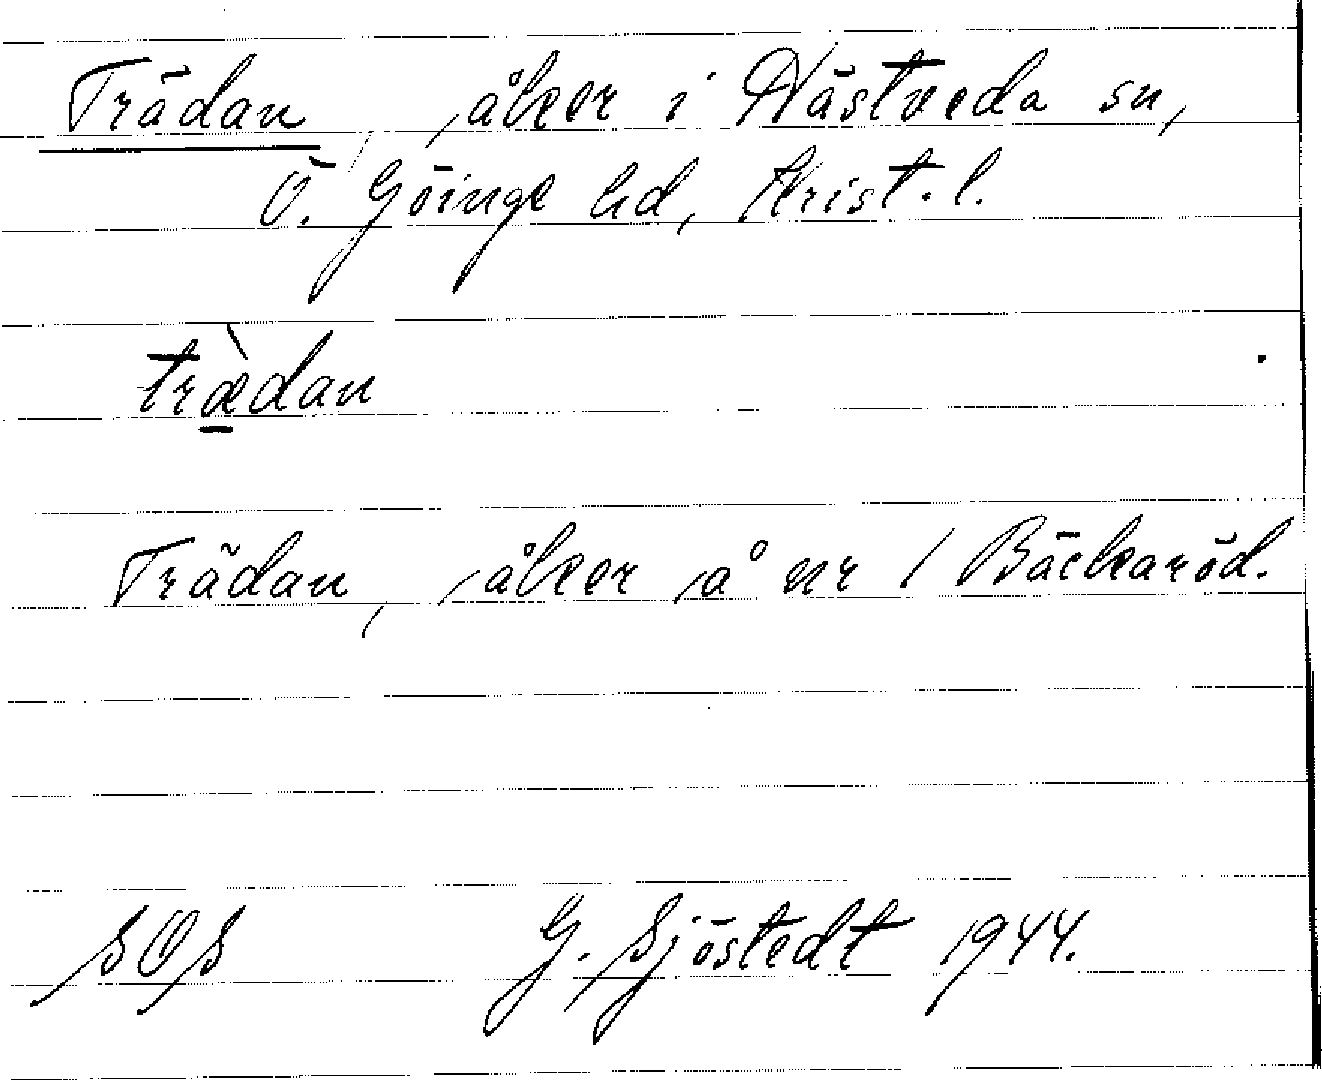 Trädan, åker i Nästveda sn,
Ö. Göinge hd, Krist. l.
træ̀dan
Trädan, åker å nr 1 Bäckaröd.
SOS G. Sjöstedt 1944.